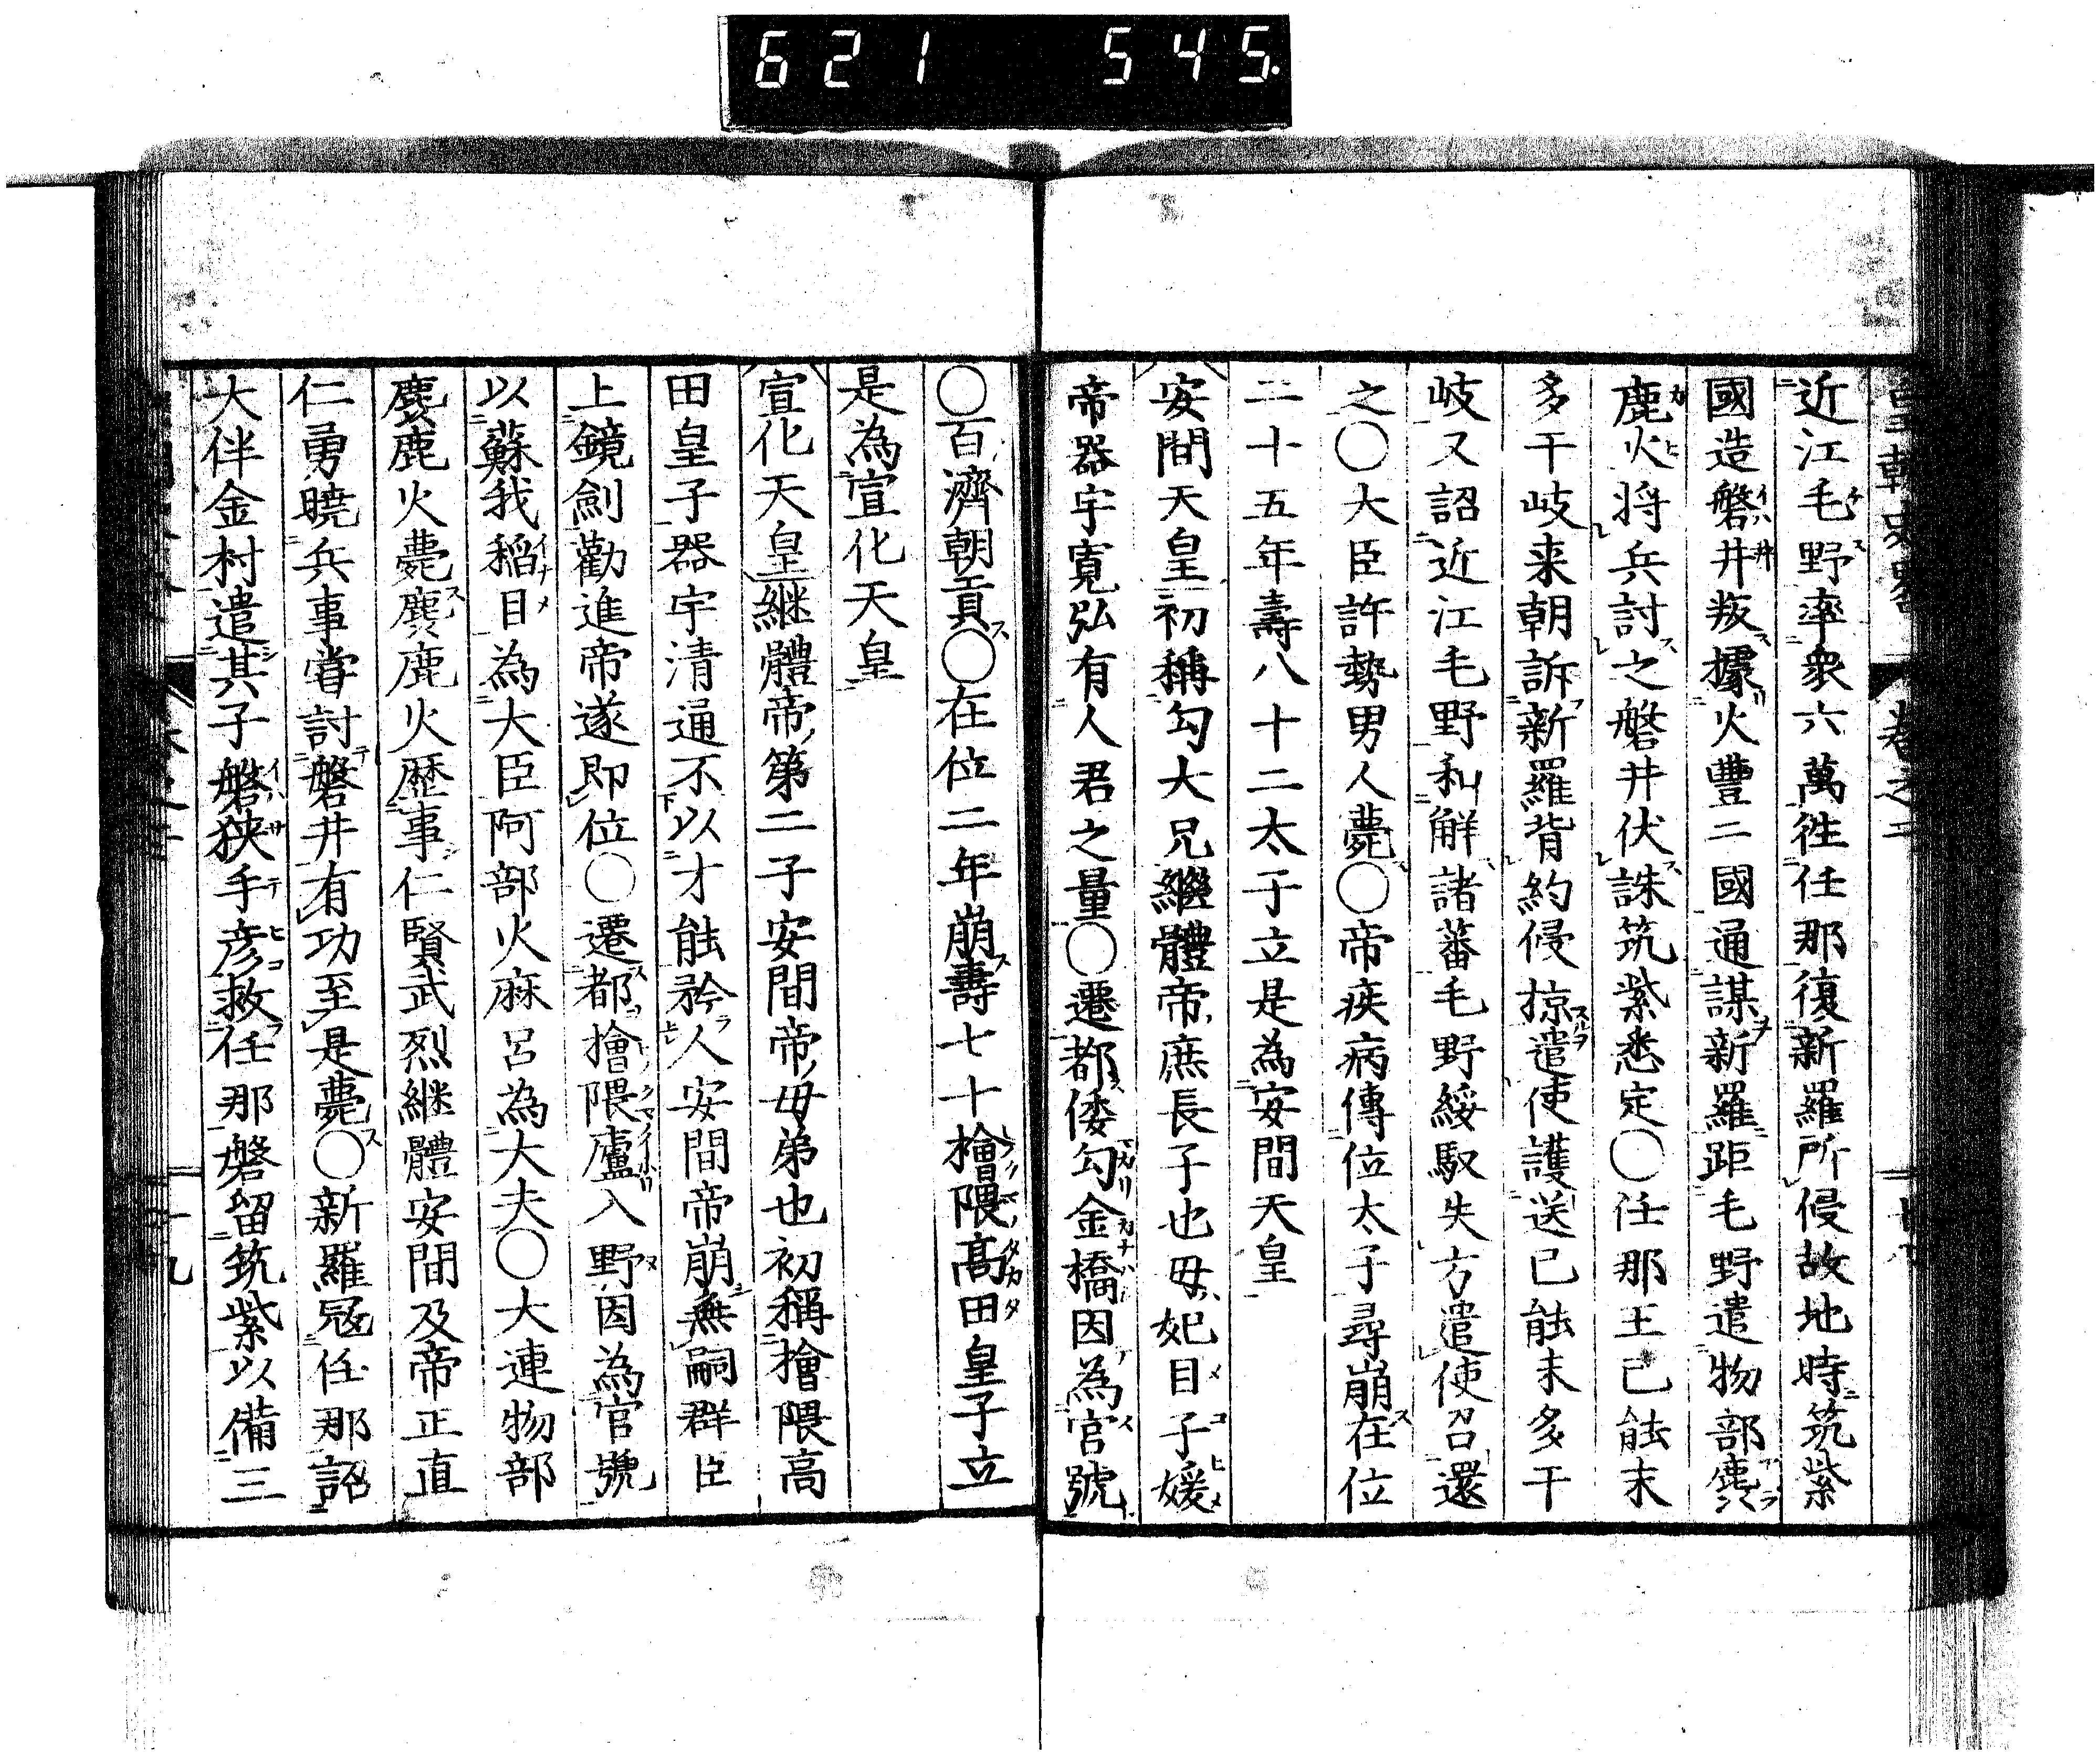 621 545.
近江毛野率衆六萬徃任那復新羅所侵故地時筑紫
國造磐井叛據火豐二國通謀新羅距毛野遣物部麁
鹿火将兵討之磐井伏誅筑紫悉定〇任那王己能末
多干岐来朝訴新羅背約侵掠遣使護送己能末多干
岐又詔近江毛野和解諸蕃毛野綏馭失方遣使召還
之〇大臣許勢男人薨〇帝疾病傳位太子尋崩在位
二十五年壽八十二太子立是為安間天皇
安間天皇初稱勾大兄繼體帝庶長子也毋妃目子媛
帝器宇寛弘有人君之量〇遷都倭勾金橋因為宮號
〇百濟朝貢〇在位二年崩壽七十檜隈髙田皇子立
是為宣化天皇
宣化天皇継體帝第二子安間帝毋弟也初稱檜隈高
田皇子器宇清通不以才能矜人安間帝崩無嗣群臣
上鏡劍勸進帝遂即位〇遷都檜隈廬入野因為宮號
以蘇我稲目為大臣阿部火麻呂為大夫〇大連物部
麁鹿火薨麁鹿火歴事仁賢武烈継體安間及帝正直
仁勇曉兵事甞討磐井有功至是薨〇新羅冦任那詔
大伴金村遣其子磐狹手彦救任那磐留筑紫以備三